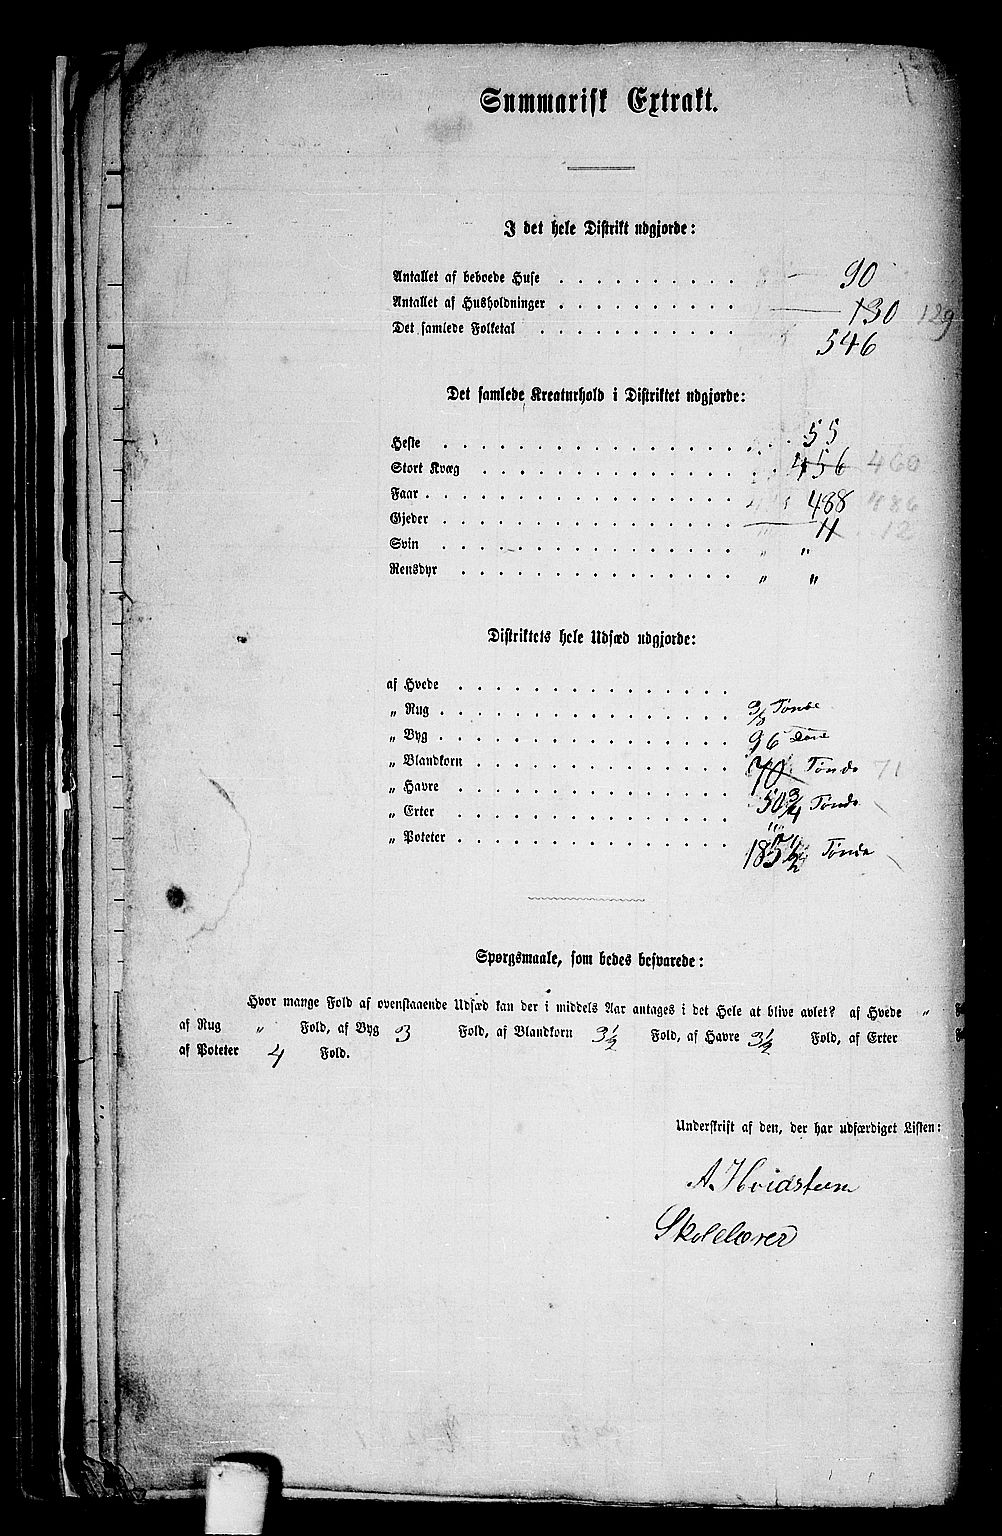 Summarisk Extrakt.
I det hele Distrikt udgjorde:
Antallet af beboede Huse . . . . . . . . . . 90
Antallet af Husholdninger . . . . . . . . . . 130 129
Det samlede Folketal . . . . . . . . . . . 546
Det samlede Kreaturhold i Distriktet udgjorde:
Heste . . . . . . . . . . . . . . . . 55
Stort Kvæg . . . . . . . . . . . . . . 456 460
Faar . . . . . . . . . . . . . . . . . 488 486
Gjeder . . . . . . . . . . . . . . . . 11 12
Svin . . . . . . . . . . . . . . . . „ „
Rensdyr . . . . . . . . . . . . . . . „ „
Distriktets hele Udsæd udgjorde:
af Hvede . . . . . . . . . . . . . . .
„ Rug . . . . . . . . . . . . . . . . 3/8 Tønde
„ Byg . . . . . . . . . . . . . . . . 96 Tønde
„ Blandkorn . . . . . . . . . . . . . . 70 Tønde 71
„ Havre . . . . . . . . . . . . . . . 50 3/4 Tønde
„ Erter . . . . . . . . . . . . . . . „
„ Poteter . . . . . . . . . . . . . . . Tønde
Spørgsmaale, som bedes besvarede:
Hvor mange Fold af ovenstaaende Udsæd kan der i middels Aar antages i det Hele at blive avlet? af Hvede „
af Rug „ Fold, af Byg 3 Fold, af Blandkorn 3 1/2 Fold, af Havre 3 1/2 Fold, af Erter
af Poteter 4 Fold.
Underskrift af den, der har udfærdiget Listen:
A. Hvidsteen
Skolelærer